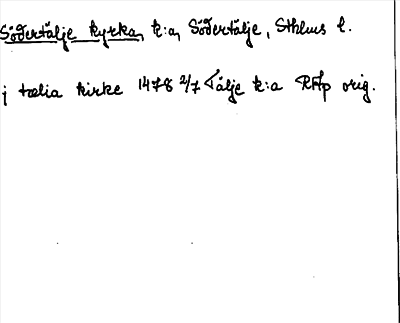 Södertälje kyrka, k:a, Södertälje, Sthlms l.
j tælia kirke 1478 2/7 Tälje k:a RAp orig.